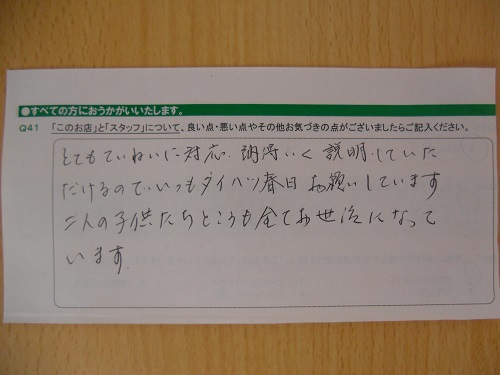 ●すべての方におうかがいいたします。
Q41 「このお店」と「スタッフ」について、良い点・悪い点やその他お気づきの点がございましたらご記入ください。
とてもていねいに対応、納得いく説明していた
だけるので、いつもダイハツ春日お願いしています
二人の子供たちとこうも全てお世話になって
います。